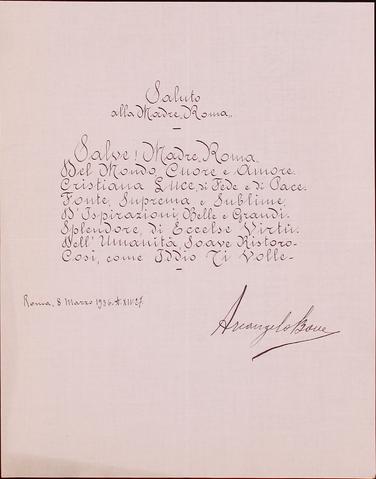 Saluto
alla Madre Roma.
Salve! Madre Roma.
Del Mondo, Cuore e Amore.
Cristiana Luce, di Fede e di Pace.
Fonte, Suprema e Sublime,
D'Ispirazioni, Belle e Grandi.
Splendore, di Eccelse Virtù.
Dell'Umanità, Soave Ristoro-
Così, come Iddio Ti Volle-
Roma, 8 Marzo 1936. A. XIV E.F.
Arcangelo Bove